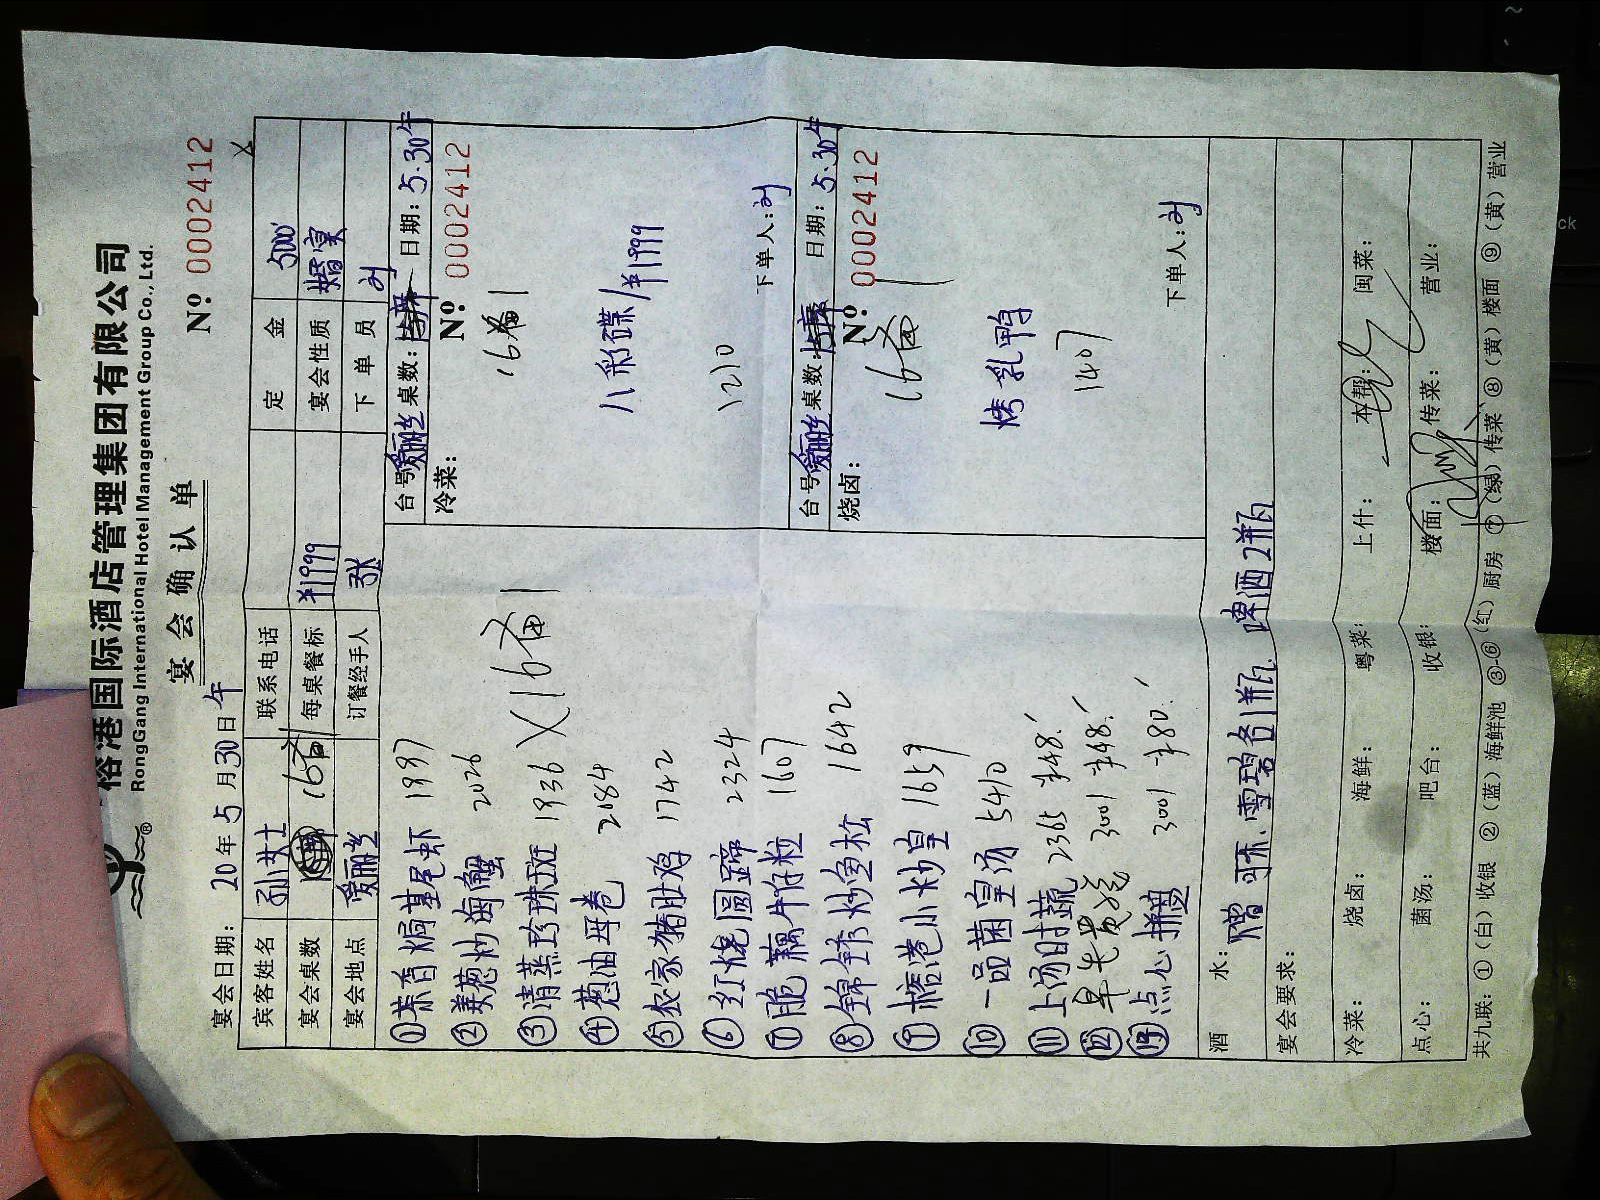 榕港国际酒店管理集团有限公司
RongGang International Hotel Management Group Co., Ltd.
®
宴会确认单
Nº 0002412
宴会日期: 20 年 5 月 30 日 午
宾客姓名 孙女士 联系电话 定金 5000
宴会桌数 16备1 每桌餐标 ¥1999 宴会性质 婚宴
宴会地点 爱丽丝 订餐经手人 张 下单员 刘
①茶香焗基尾虾 1997
②姜葱炒海蟹 2026
③清蒸珍珠斑 1936 X16备1
④葱油母卷 2084
⑤农家猪肚鸡 1742
⑥红烧圆蹄 2324
⑦脆藕牛仔粒 1607
⑧锦绣炒鱼松 1642
⑨榕港小炒皇 1659
⑩一品菌皇汤 5410
⑪上汤时蔬 2365 ¥48.
⑫ 3001 ¥48.
⑬点心拼盘 3001 ¥80.
台号 爱丽丝 桌数: 日期: 5.30午
冷菜: Nº 0002412
16备1
八彩碟/¥1999
1210
下单人: 刘
台号 爱丽丝 桌数: 日期: 5.30午
烧卤: Nº 0002412
16备1
烤乳鸭
1407
下单人: 刘
酒水: 橙.雪碧各1瓶. 啤酒2瓶
宴会要求:
冷菜: 烧卤: 海鲜: 粤菜: 上什: 本帮: 闽菜:
点心: 菌汤: 吧台: 收银: 楼面: 传菜: 营业:
共九联: ①(白)收银 ②(蓝)海鲜池 ③-⑥(红)厨房 ⑦(绿)传菜 ⑧(黄)楼面 ⑨(黄)营业